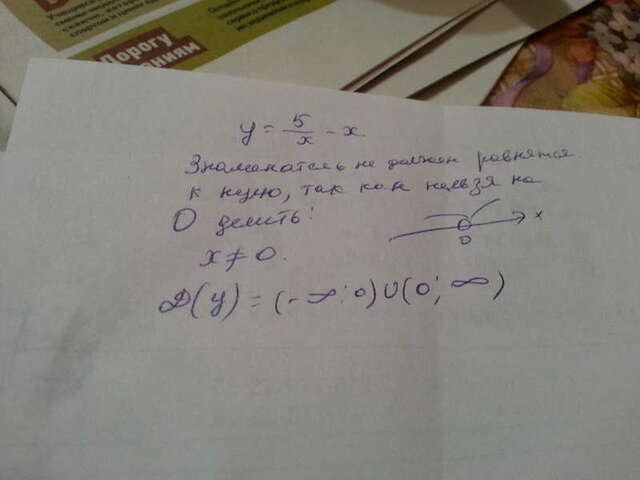 Дорогу
y = 5/x - x.
Знаменатель не должен равнятся
к нулю, так как нельзя на
0 делить!
x
0
x ≠ 0.
D(y) = (-∞; 0)U(0; ∞)